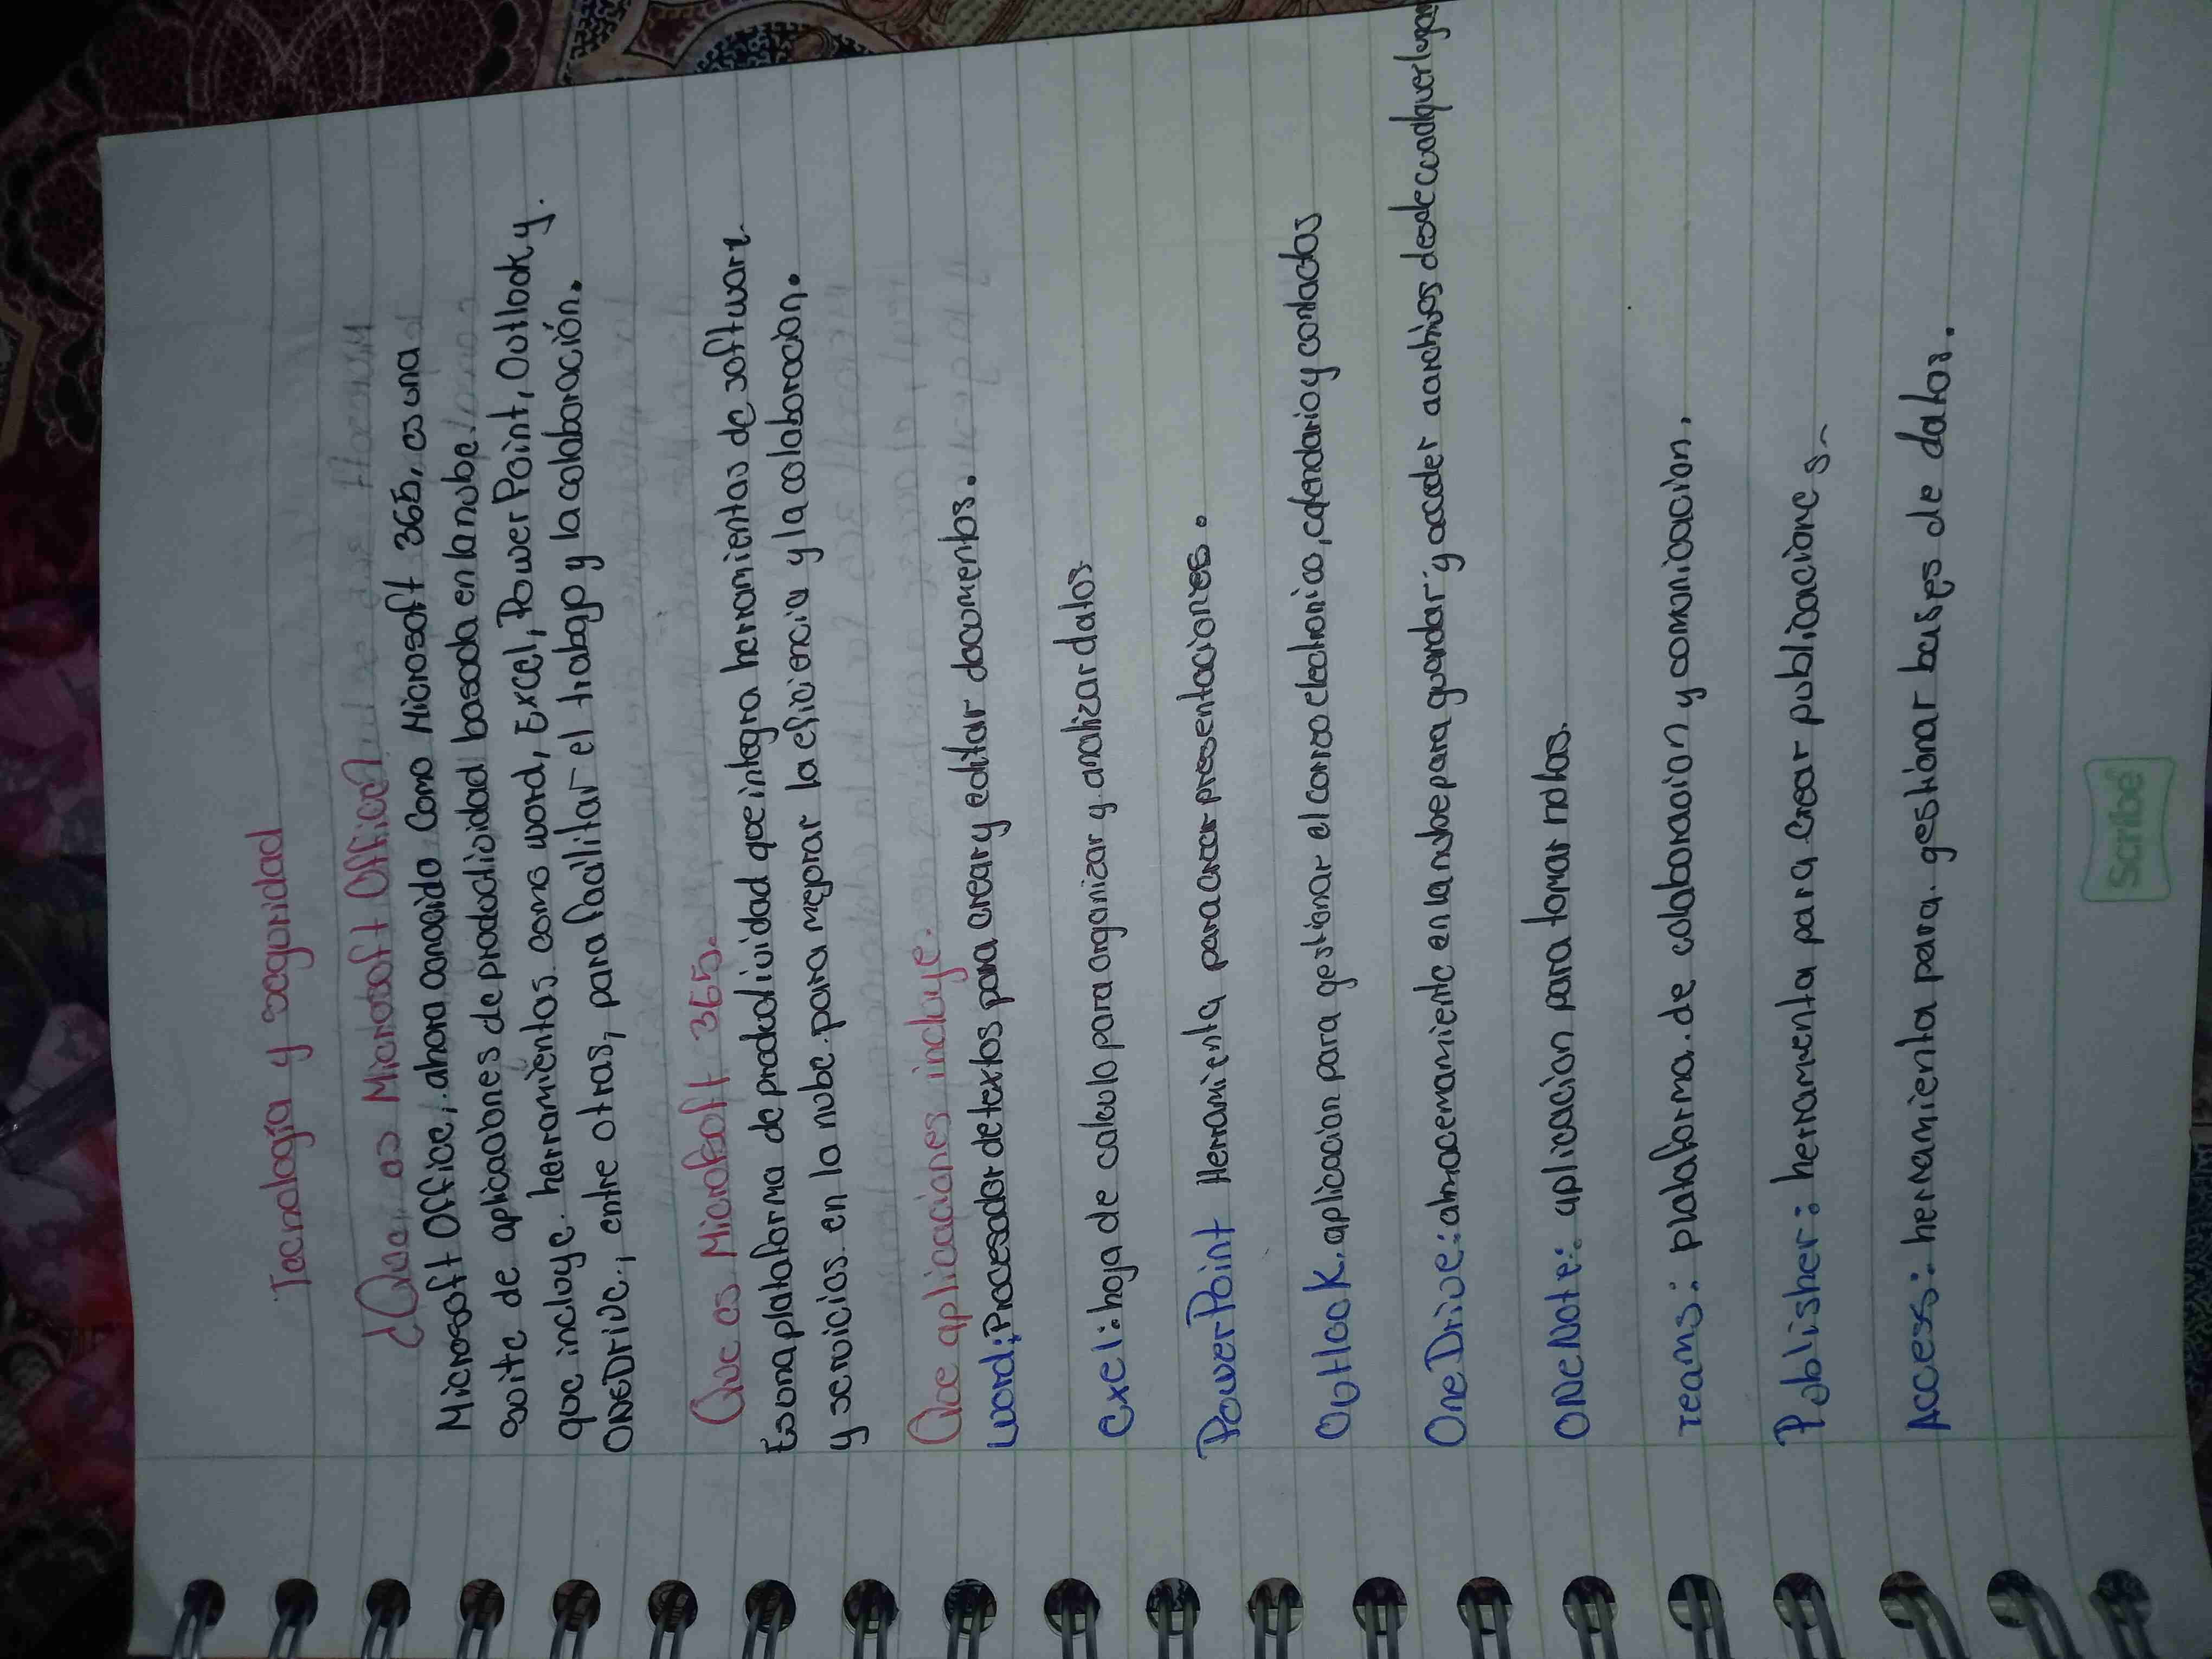 Tecnología y seguridad
¿Que es Microsoft Office?
Microsoft Office, ahora conocido como Microsoft 365, es una
suite de aplicaciones de productividad basada en la nube.
que incluye herramientas como word, Excel, PowerPoint, Outlook y.
OneDrive, entre otras, para facilitar el trabajo y la colaboración.
Que es Microsoft 365.
Es una plataforma de productividad que integra herramientas de software
y servicios en la nube para mejorar la eficiencia y la colaboracion.
Que aplicaciones incluye.
word: Procesador de textos para crear y editar documentos.
exel: hoja de calculo para organizar y analizar datos.
PowerPoint Herramienta para crear presentaciones.
Outlook. aplicacion para gestionar el correo electronico, calendario y contactos
OneDrive: almacemamiento en la nube para guardar y acceder a archivos desde cualquer lugar
ONeNote: aplicacion para tomar notas.
Teams: plataforma de colaboracion y comunicacion.
Publisher: herramenta para crear publicaciones
Access: herramienta para gestionar bases de datos.
Scribe